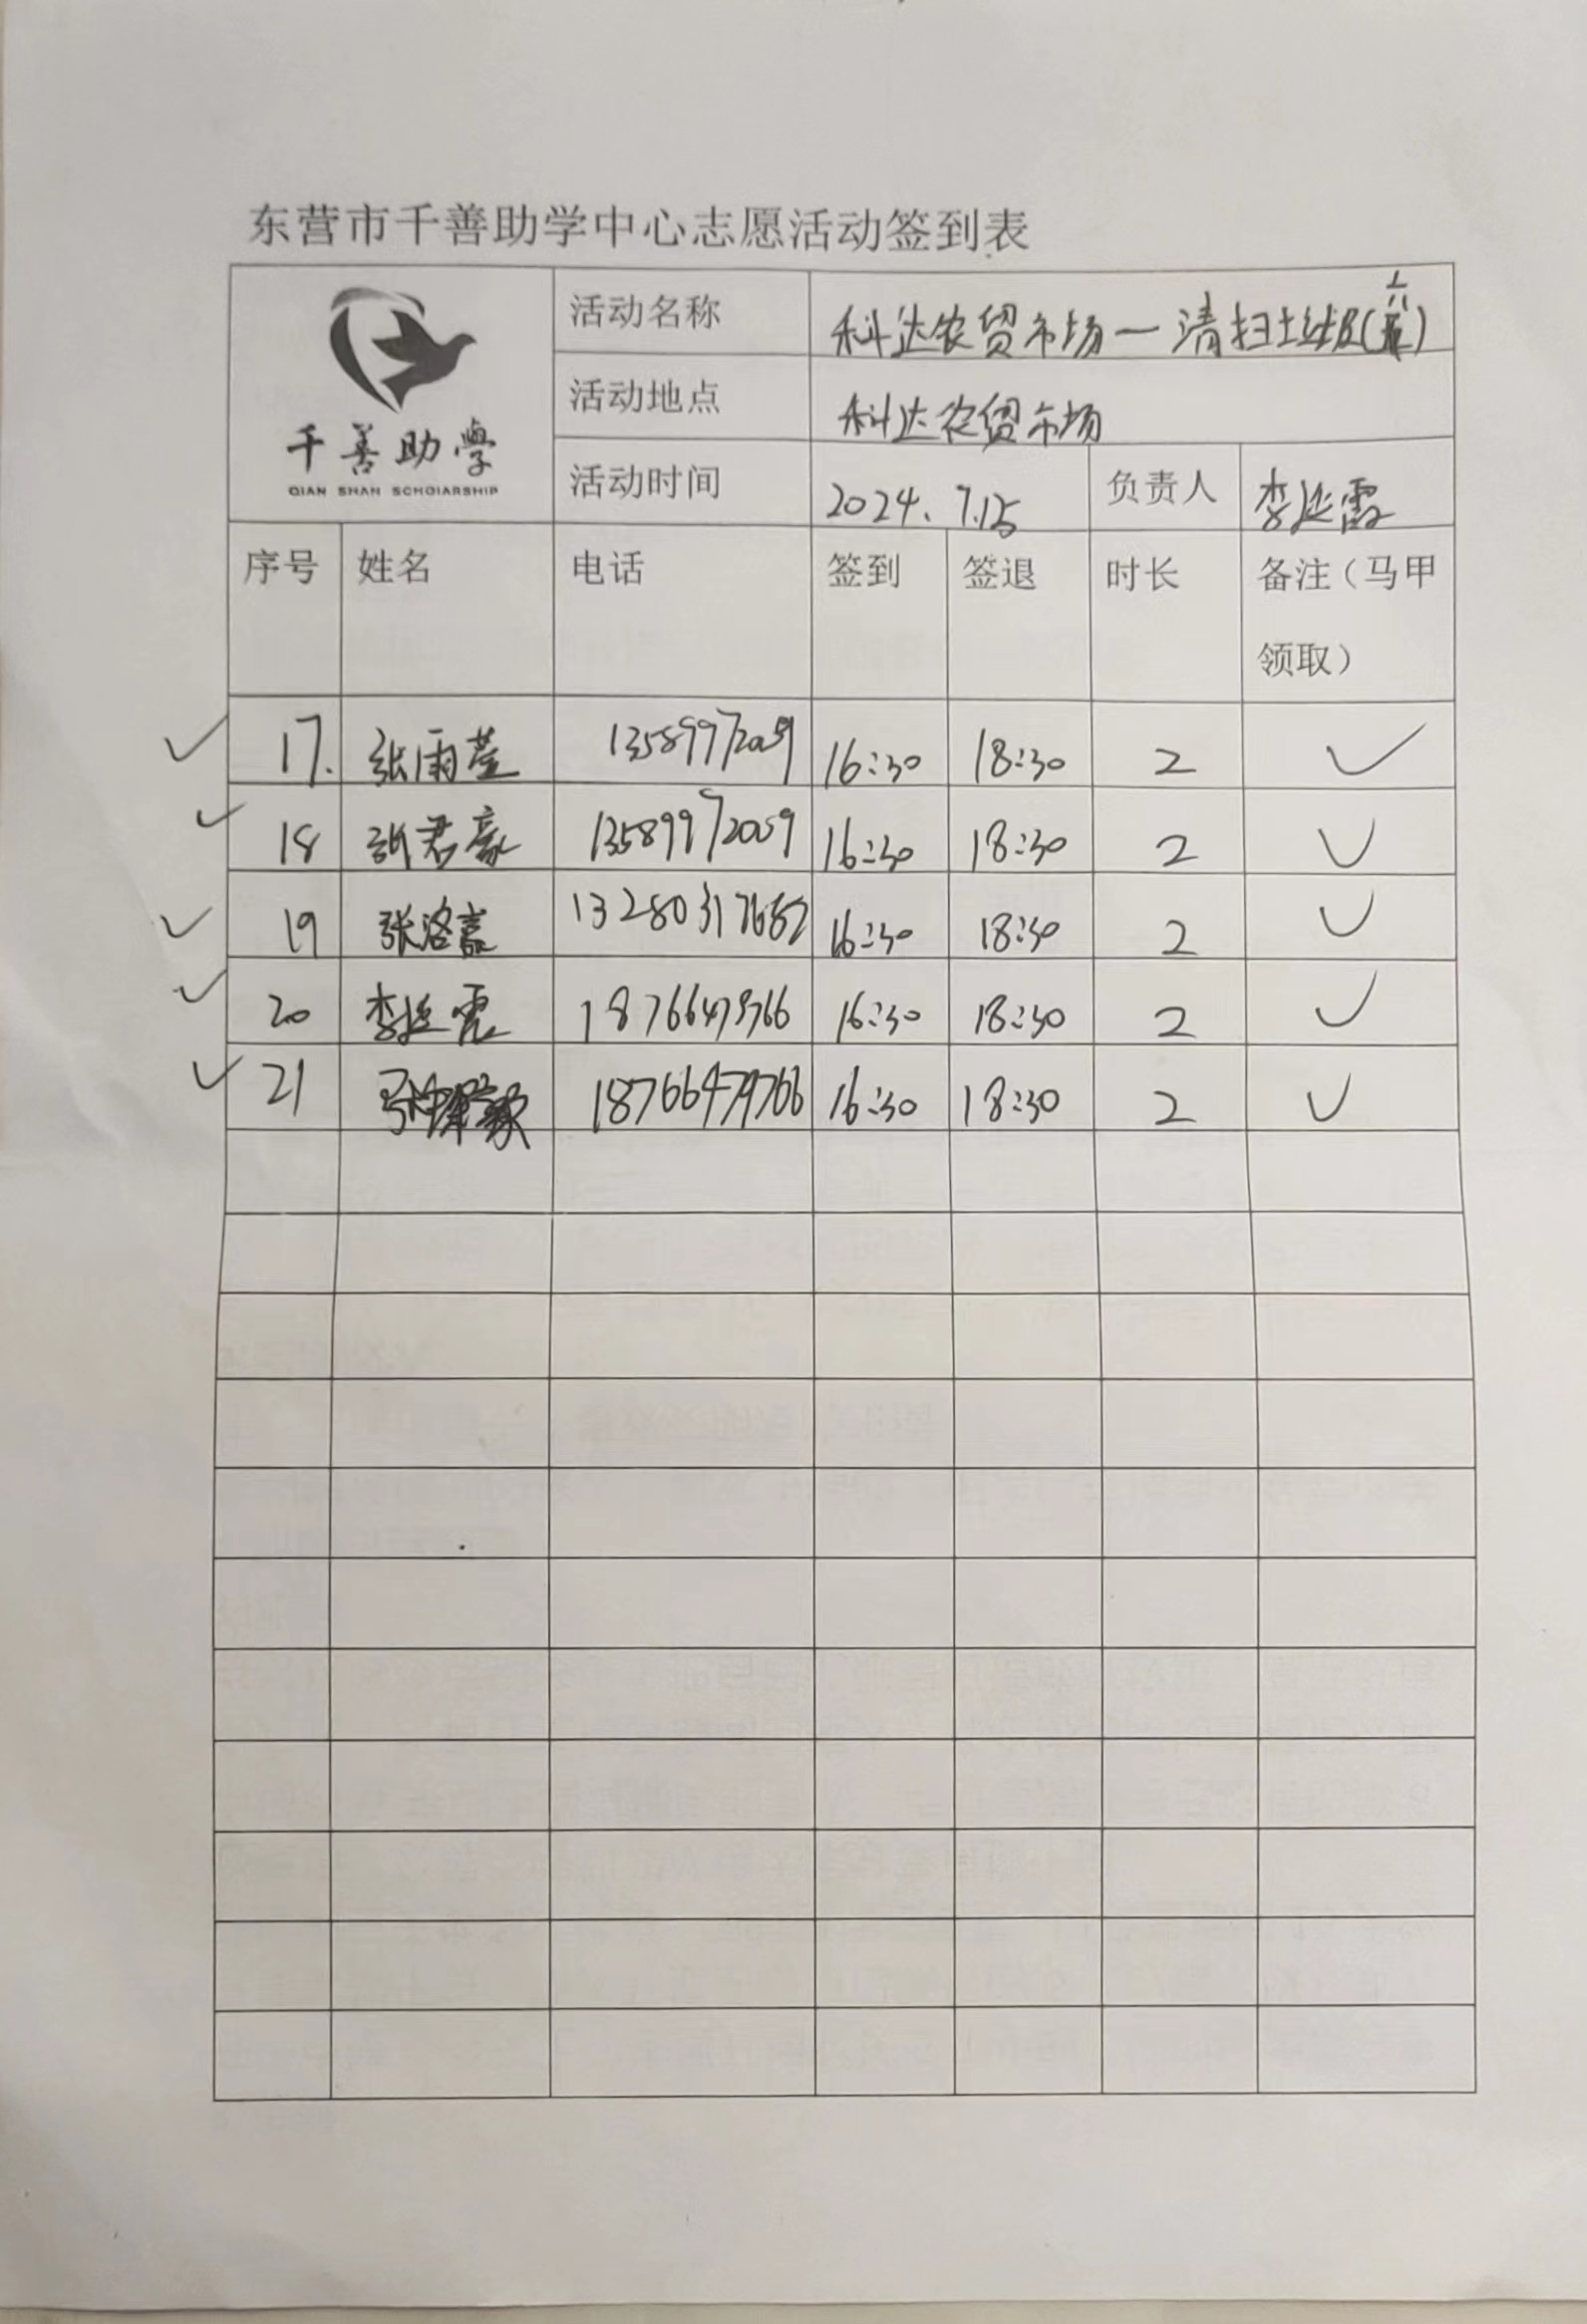 东营市千善助学中心志愿活动签到表
千善助學
QIAN SHAN SCHOLARSHIP
活动名称 科达农贸市场一清扫垃圾
活动地点 科达农贸市场
活动时间 2024.7.15 负责人 李延霞
序号 姓名 电话 签到 签退 时长 备注（马甲
领取）
✓ 17. 张雨萱 16:30 18:30 2 ✓
✓ 18 张君豪 13589972009 16:30 18:30 2 ✓
✓ 19 张洛嘉 13280317682 16:30 18:30 2 ✓
✓ 20 李延霞 16:30 18:30 2 ✓
✓ 21 18766479766 16:30 18:30 2 ✓